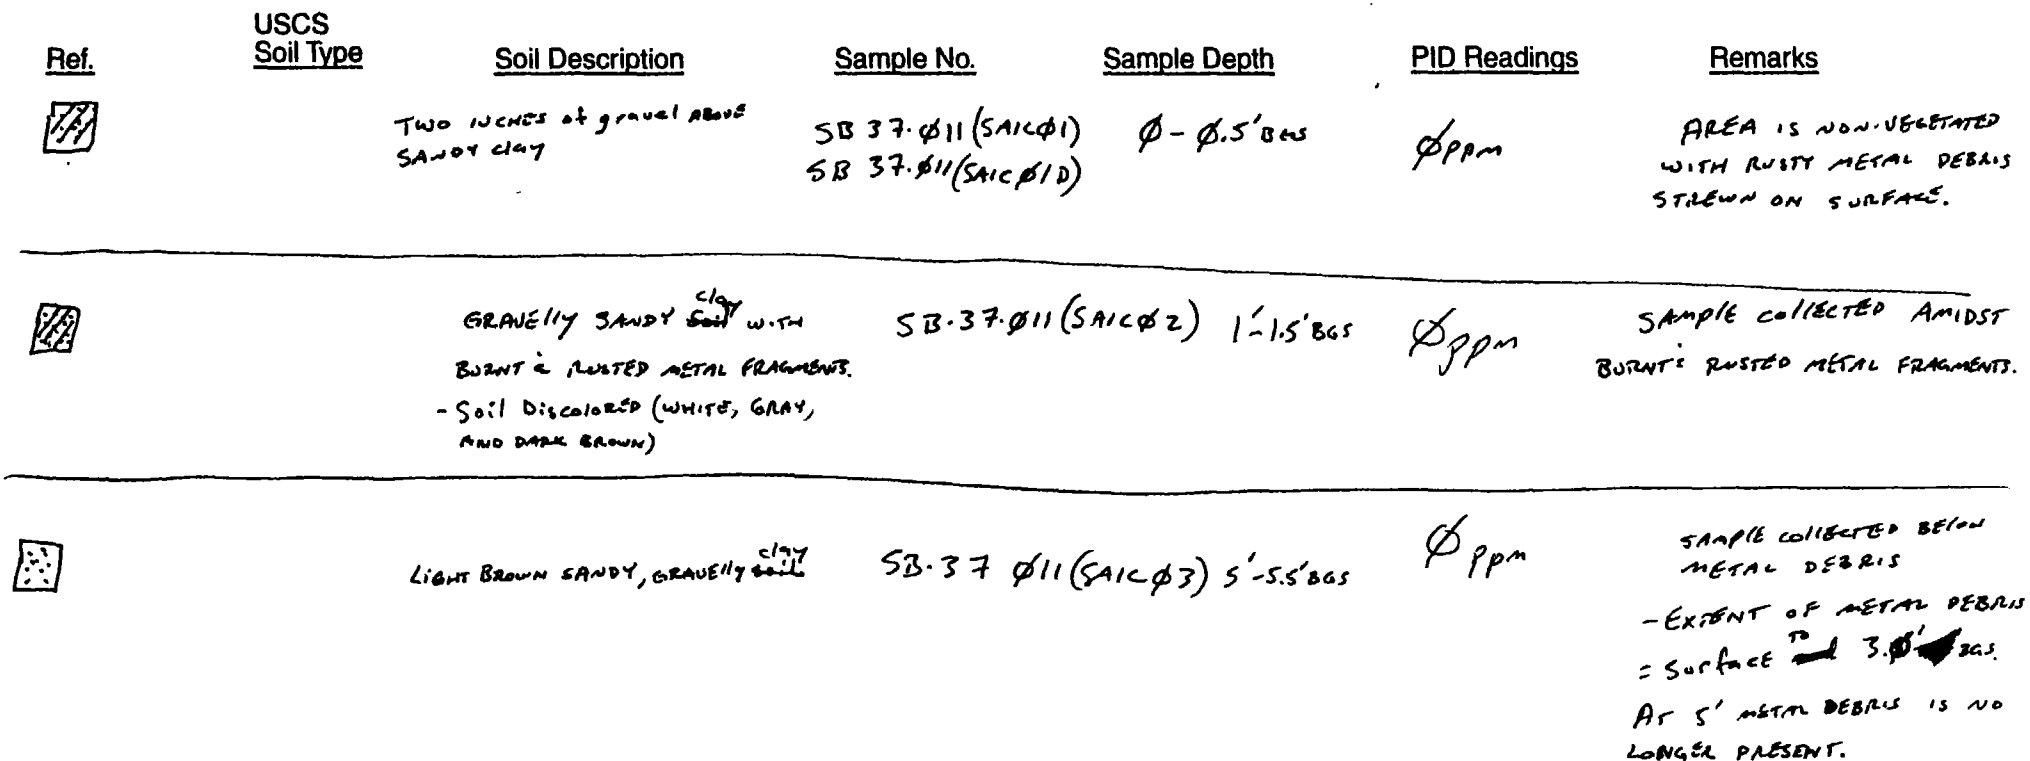 USCS
Ref. Soil Type Soil Description Sample No. Sample Depth PID Readings Remarks
TWO INCHES of gravel ABOVE
SANDY clay
SB 37.Ø11 (SAICØ1)
SB 37.Ø11 (SAICØ1D)
Ø - Ø.5' BGS
Øppm
AREA IS NON-VEGETATED
WITH RUSTY METAL DEBRIS
STREWN ON SURFACE.
GRAVElly SANDY clay WITH
BURNT & RUSTED METAL FRAGMENTS.
- Soil DiscolorED (WHITE, GRAY,
AND DARK BROWN)
SB.37.Ø11 (SAICØ2) 1'-1.5' BGS
Øppm
SAMPlE collECTED AMIDST
BURNT & RUSTED METAL FRAGMENTS.
LIGHT BROWN SANDY, GRAVElly clay
SB.37 Ø11 (SAICØ3) 5'-5.5' BGS
Øppm
SAMPlE collECTED BElow
METAL DEBRIS
- EXTENT OF METAL DEBRIS
= Surface TO 3.Ø' BGS.
AT 5' METAL DEBRIS IS NO
LONGER PRESENT.